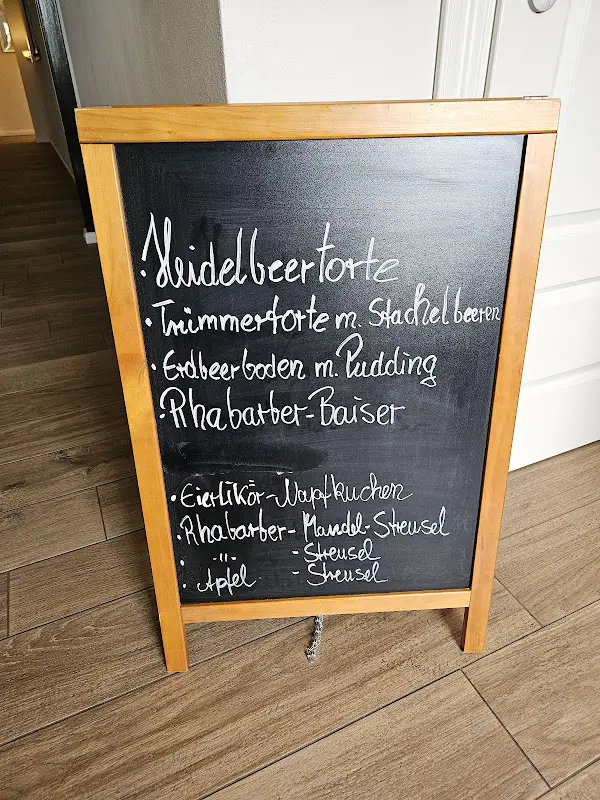 · Heidelbeertorte
· Trümmertorte m. Stachelbeeren
· Erdbeerboden m. Pudding
· Rhabarber-Baiser
· Eierlikör-Napfkuchen
· Rhabarber-Mandel-Streusel
· -"- - Streusel
· Apfel - Streusel